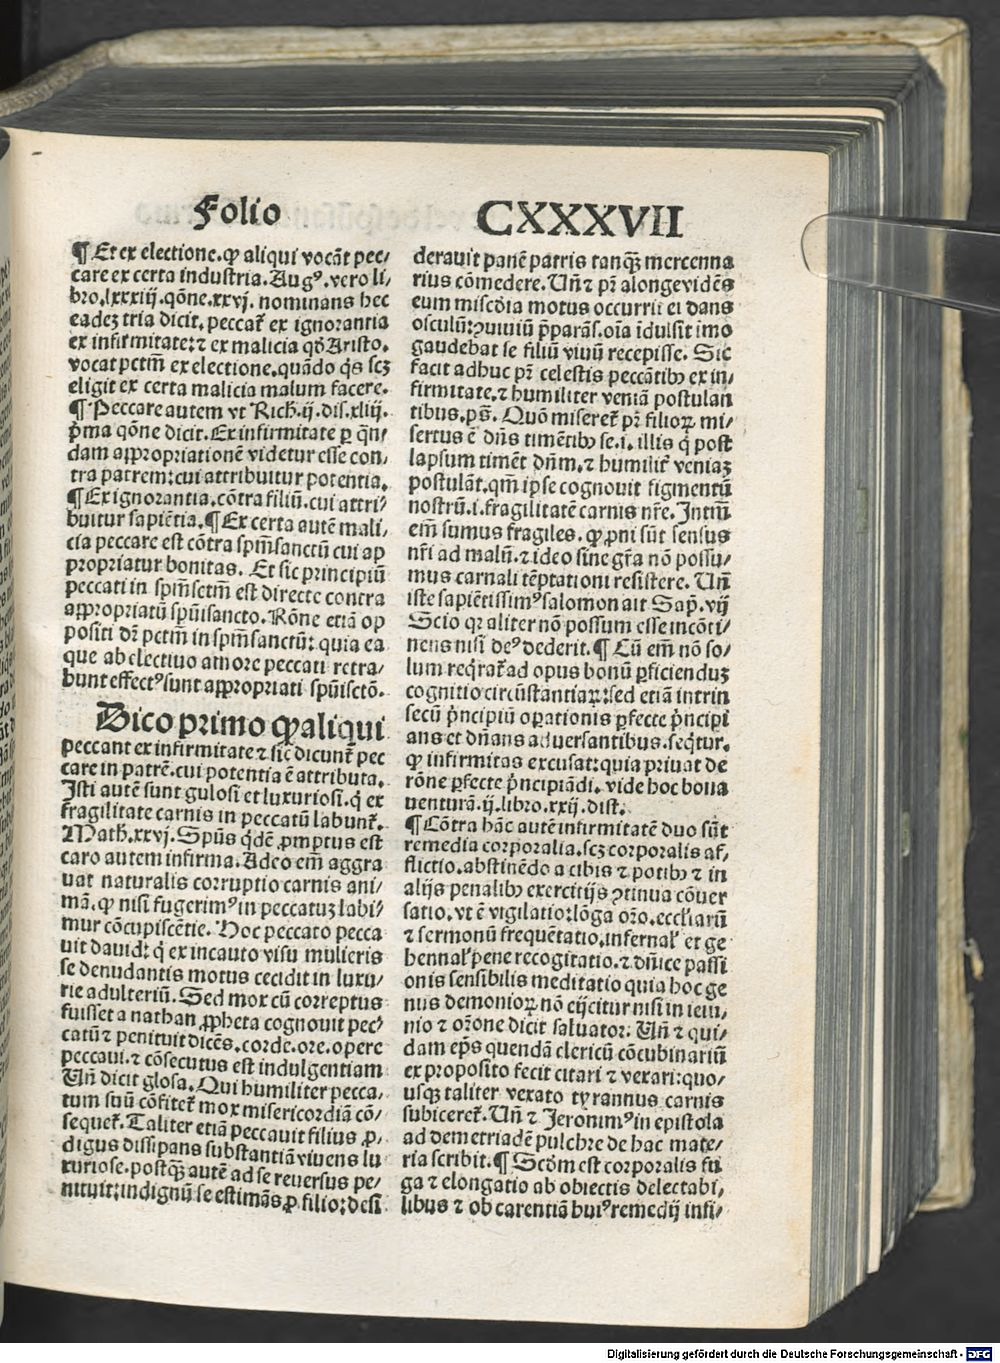 Folio
CXXXVII
¶ Et ex electione. ꝙ aliqui vocāt pec/
care ex certa industria. Augꝰ. vero li/
bro. lxxxiij. qōne. xxvj. nominans hec
eadeꝫ tria dicit. peccat᷑ ex ignorantia
ex infirmitate: ⁊ ex malicia qd̄ Aristo.
vocat pctm̄ ex electione. quādo qs̄ scꝫ
eligit ex certa malicia malum facere.
¶ Peccare autem vt Rich. ij. dis. xliij.
pͥma qōne dicit. Ex infirmitate ꝑ qn̄/
dam appropriationē videtur esse con/
tra patrem: cui attribuitur potentia.
¶ Ex ignorantia. cōtra filiū. cui attri/
buitur sapiētia. ¶ Ex certa autē mali/
cia peccare est cōtra spm̄sanctū cui ap
propriatur bonitas. Et sic principiū
peccati in spm̄sctm̄ est directe contra
appropriatū spūisancto. Rōne etiā op
positi dr̄ pctm̄ in spm̄sanctū: quia ea
que ab electiuo amore peccati retra/
bunt effectꝰ sunt appropriati spūisctō.
Dico primo ꝙ aliqui
peccant ex infirmitate ⁊ sic dicunt᷑ pec
care in patrē. cui potentia ē attributa.
Isti autē sunt gulosi et luxuriosi. qͥ ex
fragilitate carnis in peccatū labunt᷑.
Math. xxvj. Spūs qͥdē ꝓmptus est
caro autem infirma. Adeo em̄ aggra
uat naturalis corruptio carnis ani/
mā. ꝙ nisi fugerimꝰ in peccatuꝫ labi/
mur cōcupiscētie. Hoc peccato pecca
uit dauid: qͥ ex incauto visu mulieris
se denudantis motus cecidit in luxu/
rie adulteriū. Sed mox cū correptus
fuisset a nathan ꝓpheta cognouit pec/
catū ⁊ penituit dicēs. corde. ore. opere
peccaui. ⁊ cōsecutus est indulgentiam
Un̄ dicit glosa. Qui humiliter pecca/
tum suū cōfitet᷑ mox misericordiā cō/
sequet᷑. Taliter etiā peccauit filius ꝓ/
digus dissipans substantiā viuens lu
xuriose. postqꝫ autē ad se reuersus pe/
nituit: indignū se estimās ꝓ filio: desi
derauit panē patris tanqꝫ mercenna
rius cōmedere. Un̄ ⁊ pr̄ a longe vidēs
eum misc̄dia motus occurrit ei dans
osculū: ꝯuiuiū p̄parās. oīa īdulsit imo
gaudebat se filiū viuū recepisse. Sic
facit adhuc pr̄ celestis peccātibꝫ ex in/
firmitate. ⁊ humiliter veniā postulan
tibus. ps̄. Quō miseret᷑ pr̄ filioꝝ. mi/
sertus ē dn̄s timētibꝫ se. i. illis qͥ post
lapsum timēt dn̄m. ⁊ humilit᷑ veniaꝫ
postulāt. qm̄ ipse cognouit figmentū
nostrū. i. fragilitatē carnis nr̄e. Intm̄
em̄ sumus fragiles. ꝙ ꝓni sūt sensus
nr̄i ad malū. ⁊ ideo sine gr̄a nō possu/
mus carnali tēptationi resistere. Un̄
iste sapiētissimꝰ salomon ait Sap̄. vij
Scio qꝛ aliter nō possum esse incōti/
nens nisi deꝰ dederit. ¶ Cū em̄ nō so/
lum reqͥrat᷑ ad opus bonū ꝑficienduꝫ
cognitio circūstantiaꝝ: sed etiā intrin
secū pͥncipiū oꝑationis ꝑfecte pͥncipi
ans et dn̄ans aduersantibus. seqͥtur.
ꝙ infirmitas excusat: quia priuat de
rōne ꝑfecte pͥncipiādi. vide hoc bona
uenturā. ij. libro. xxij. dist.
¶ Cōtra hāc autē infirmitatē duo sūt
remedia corporalia. scꝫ corporalis af/
flictio. abstinēdo a cibis ⁊ potibꝫ ⁊ in
alijs penalibꝫ exercitijs ꝯtinua cōuer
satio. vt ē vigilatio: lōga or̄o. eccl̄iarū
⁊ sermonū frequētatio. infernal᷑ et ge
hennal᷑ pene recogitatio. ⁊ dn̄ice passi
onis sensibilis meditatio quia hoc ge
nus demonioꝝ nō eijcitur nisi in ieiu/
nio ⁊ or̄one dicit saluator. Un̄ ⁊ qui/
dam ep̄s quendā clericū cōcubinariū
ex proposito fecit citari ⁊ vexari: quo/
usqꝫ taliter vexato tyrannus carnis
subiceret᷑. Un̄ ⁊ Jeronimꝰ in epistola
ad demetriadē pulchre de hac mate/
ria scribit. ¶ Scd̄m est corporalis fu
ga ⁊ elongatio ab obiectis delectabi/
libus ⁊ ob carentiā huiꝰ remedij infi/
Digitalisierung gefördert durch die Deutsche Forschungsgemeinschaft - DFG